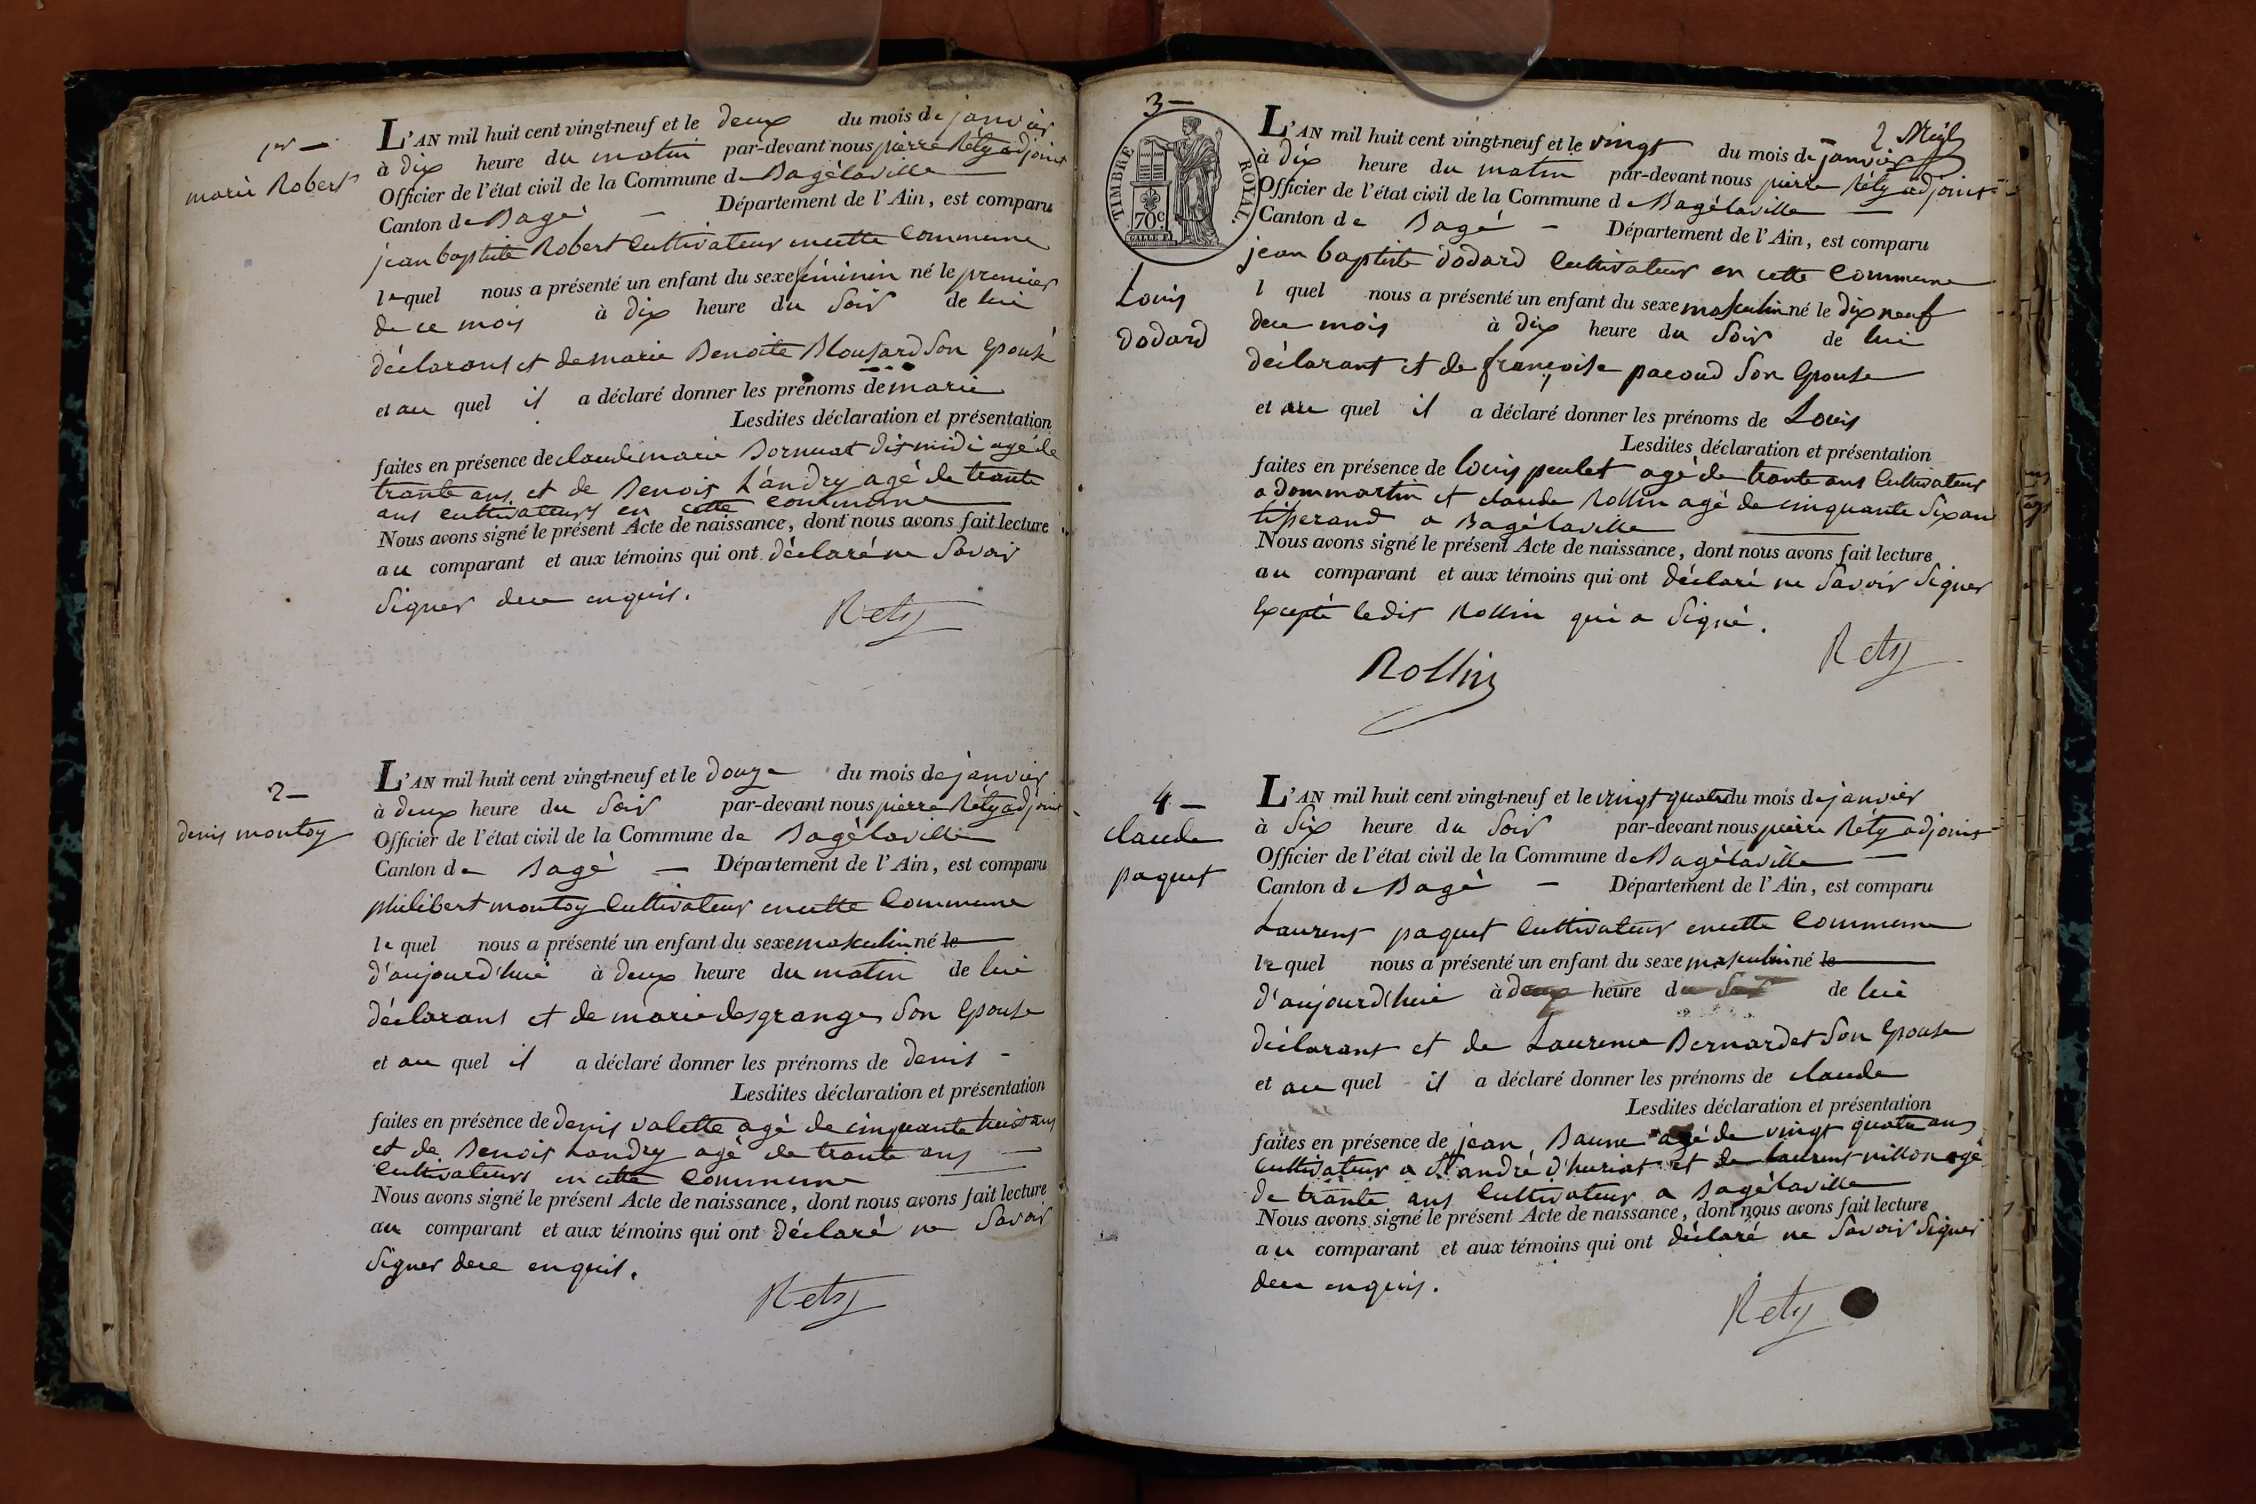 1er —
marie Robert
L'AN mil huit cent vingt-neuf et le deux du mois de janvier
à dix heure du matin par-devant nous pierre Réty adjoint
Officier de l'état civil de la Commune de Bagélaville —
Canton de Bagé — Département de l'Ain, est comparu
jean baptiste Robert cultivateur en cette commune
lequel nous a présenté un enfant du sexe féminin né le premier
de ce mois à dix heure du soir de lui
déclarant et de marie Benoite Blousard son épouse
et au quel il a déclaré donner les prénoms de marie
Lesdites déclaration et présentation
faites en présence de claude marie dit midi agé de
trante ans et de Benoit Landry agé de trante
ans cultivateurs en cette commune
Nous avons signé le présent Acte de naissance, dont nous avons fait lecture
au comparant et aux témoins qui ont déclaré ne savoir
signer de ce enquis.
Rety
2 —
denis montoy
L'AN mil huit cent vingt-neuf et le douze du mois de janvier
à deux heure du soir par-devant nous pierre Réty adjoint
Officier de l'état civil de la Commune de Bagélaville
Canton de Bagé — Département de l'Ain, est comparu
philibert montoy cultivateur en cette commune
le quel nous a présenté un enfant du sexe masculin né le
d'aujourd'hui à deux heure du matin de lui
déclarant et de marie desgranges son épouse
et au quel il a déclaré donner les prénoms de denis -
Lesdites déclaration et présentation
faites en présence de denis valette agé de cinquante huit ans
et de Benoit Landry agé de trante ans —
cultivateurs en cette commune
Nous avons signé le présent Acte de naissance, dont nous avons fait lecture
au comparant et aux témoins qui ont déclaré ne savoir
signer de ce enquis.
Rety
3 —
TIMBRE ROYAL.
70c.
Louis
dodard
L'AN mil huit cent vingt-neuf et le vingt du mois de janvier
à dix heure du matin par-devant nous pierre Réty adjoint
Officier de l'état civil de la Commune de Bagélaville —
Canton de Bagé — Département de l'Ain, est comparu
jean baptiste dodard cultivateur en cette commune
l quel nous a présenté un enfant du sexe masculin né le dix neuf
de ce mois à dix heure du soir de lui
déclarant et de françoise pacoud son épouse
et au quel il a déclaré donner les prénoms de Louis
Lesdites déclaration et présentation
faites en présence de louis peulet agé de trante ans cultivateur
a dommartin et claude Rollin agé de cinquante six ans
tisserand a Bagélaville
Nous avons signé le présent Acte de naissance, dont nous avons fait lecture
au comparant et aux témoins qui ont déclaré ne savoir signer
excepté ledit Rollin qui a signé.
Rollin
Rety
4 —
claude
paquet
L'AN mil huit cent vingt-neuf et le vingt quatre du mois de janvier
à six heure du soir par-devant nous pierre Réty adjoint
Officier de l'état civil de la Commune de Bagélaville —
Canton de Bagé — Département de l'Ain, est comparu
Laurent paquet cultivateur en cette commune
lequel nous a présenté un enfant du sexe masculin né le
d'aujourd'hui à deux heure du soir de lui
déclarant et de Laurence Bernardet son épouse
et au quel il a déclaré donner les prénoms de claude
Lesdites déclaration et présentation
faites en présence de jean Baune agé de vingt quatre ans
cultivateur a St andré d'huriat et de laurent agé
de trante ans cultivateur a Bagélaville
Nous avons signé le présent Acte de naissance, dont nous avons fait lecture
au comparant et aux témoins qui ont déclaré ne savoir signer
de ce enquis.
Rety